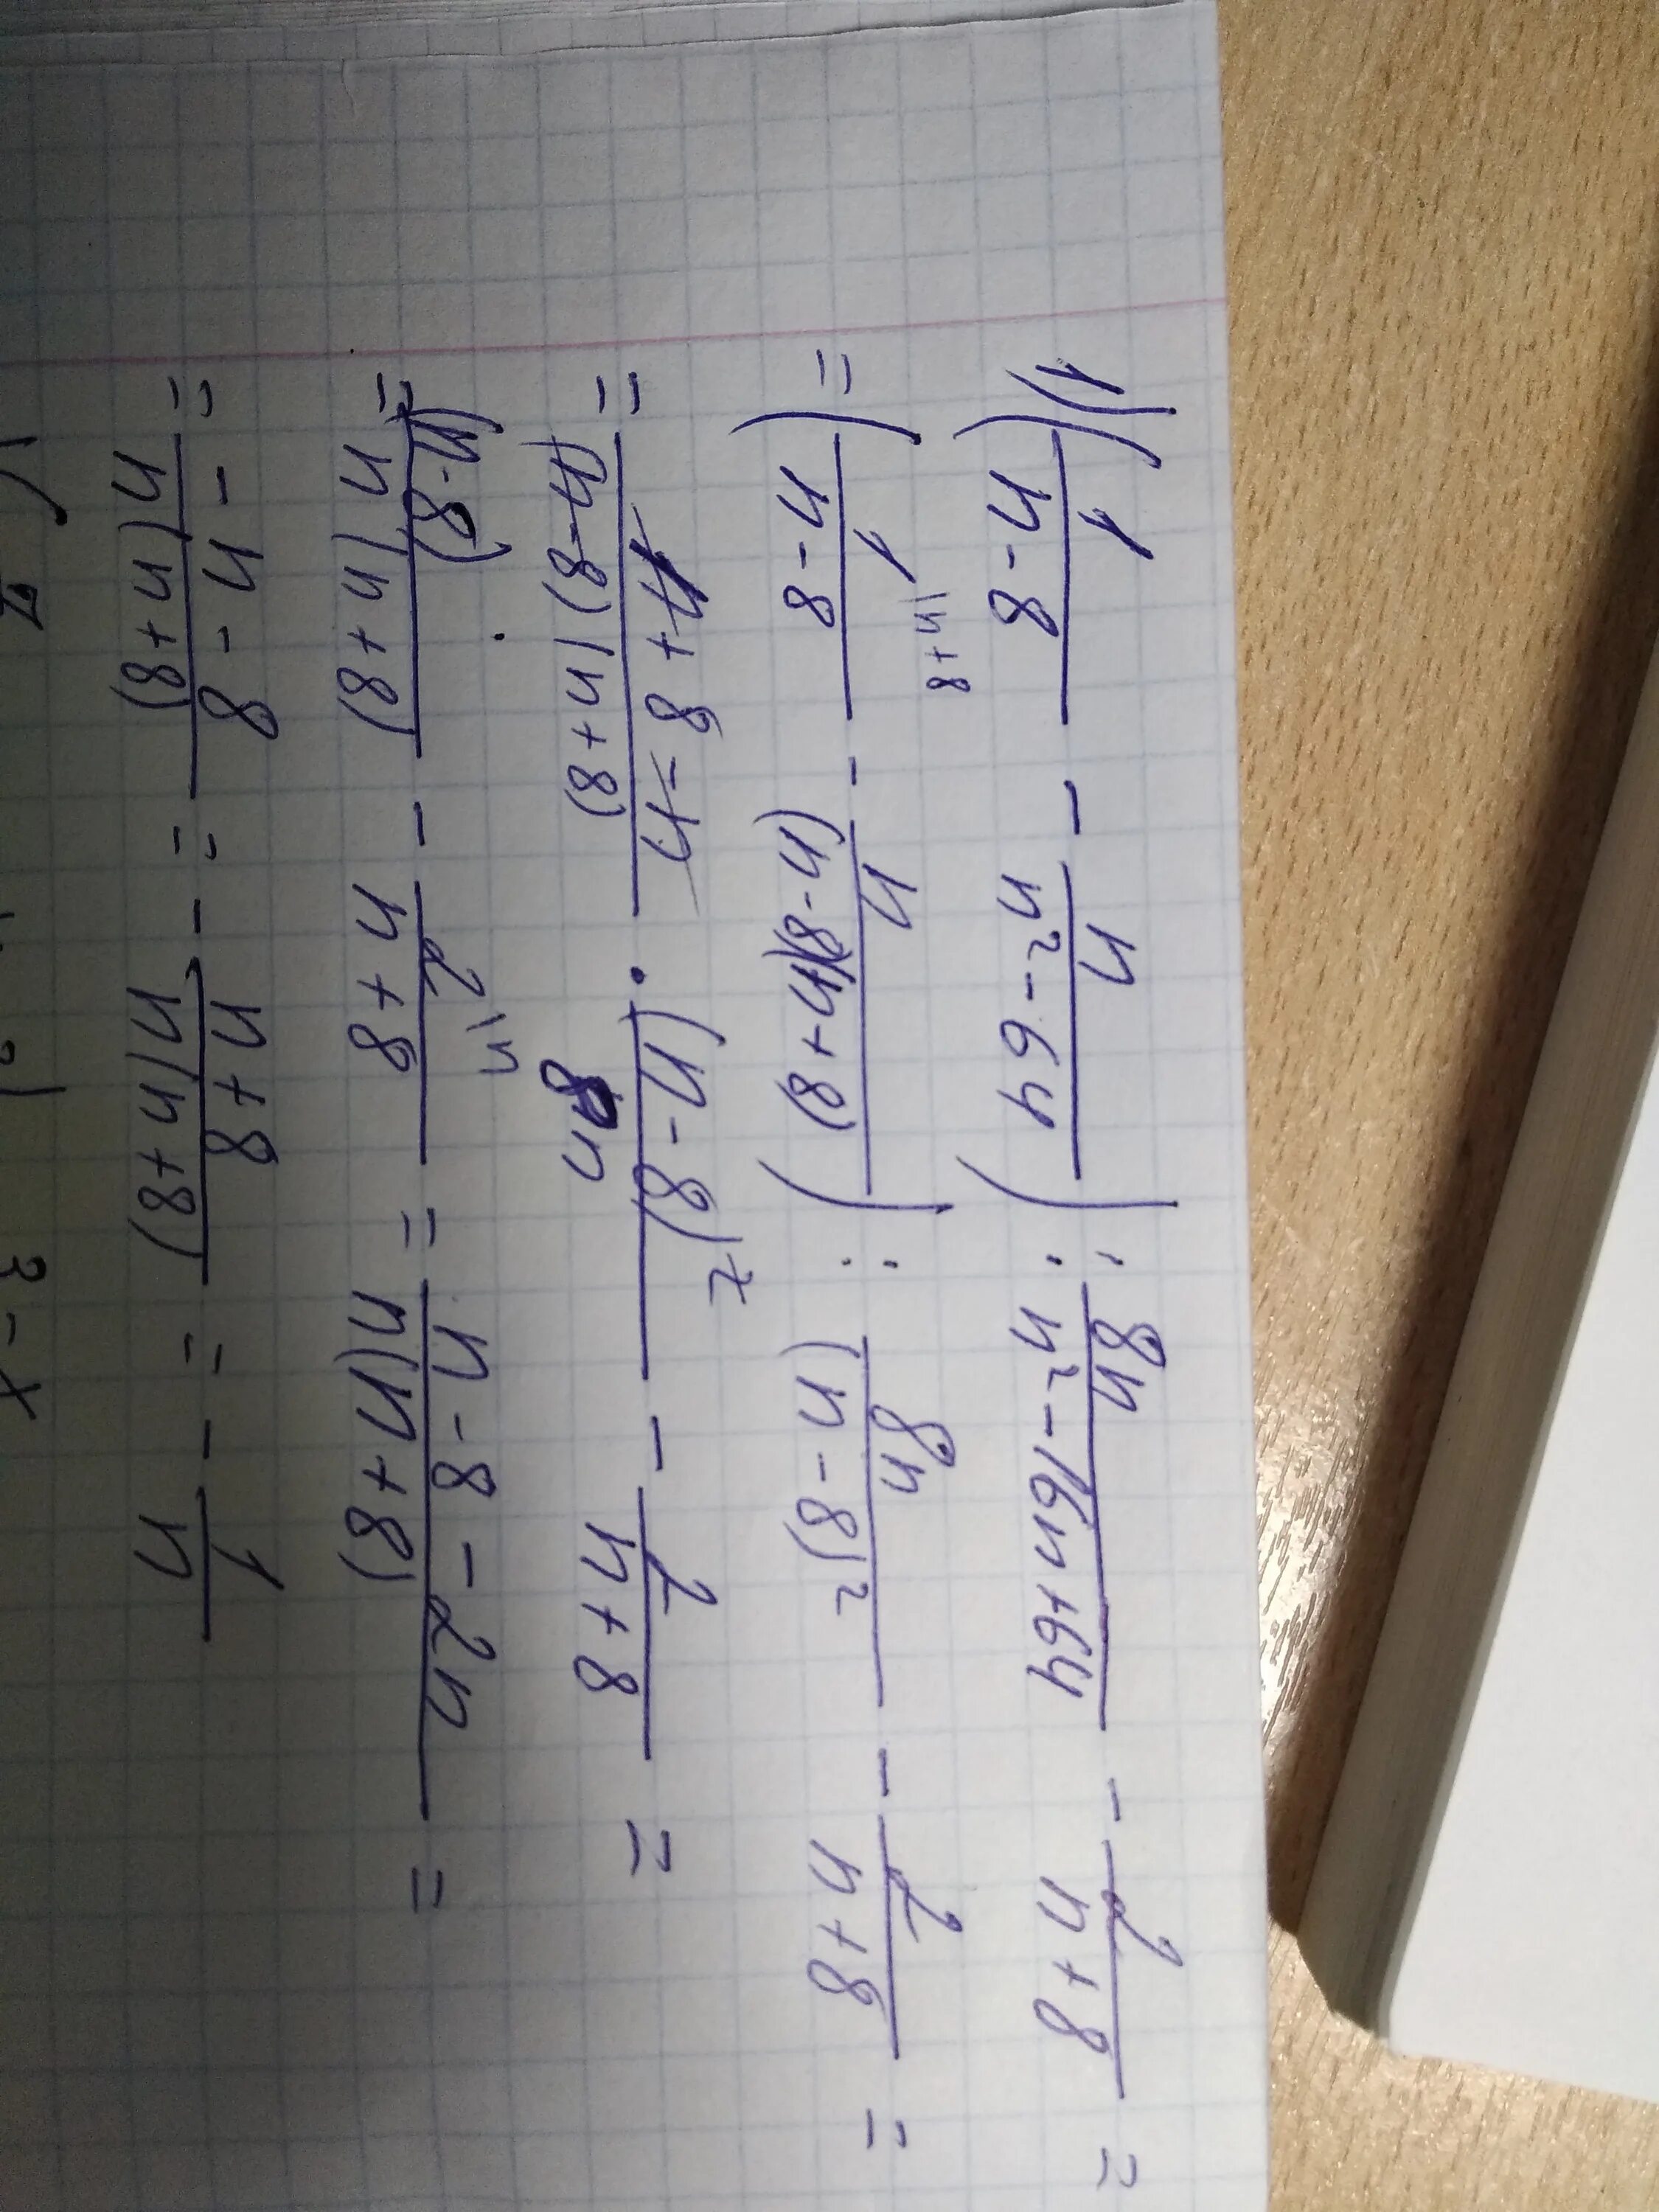 1) (1/(n-8) - n/(n²-64)) : 8n/(n²-16n+64) - 2/(n+8) =
= (1\n+8/(n-8) - n/((n-8)(n+8))) : 8n/(n-8)² - 2/(n+8) =
= (n+8-n)/((n-8)(n+8)) · (n-8)²/8n - 2/(n+8) =
= (n-8)/(n(n+8)) - 2\n/(n+8) = (n-8-2n)/(n(n+8)) =
= (-n-8)/(n(n+8)) = - (n+8)/(n(n+8)) = - 1/n